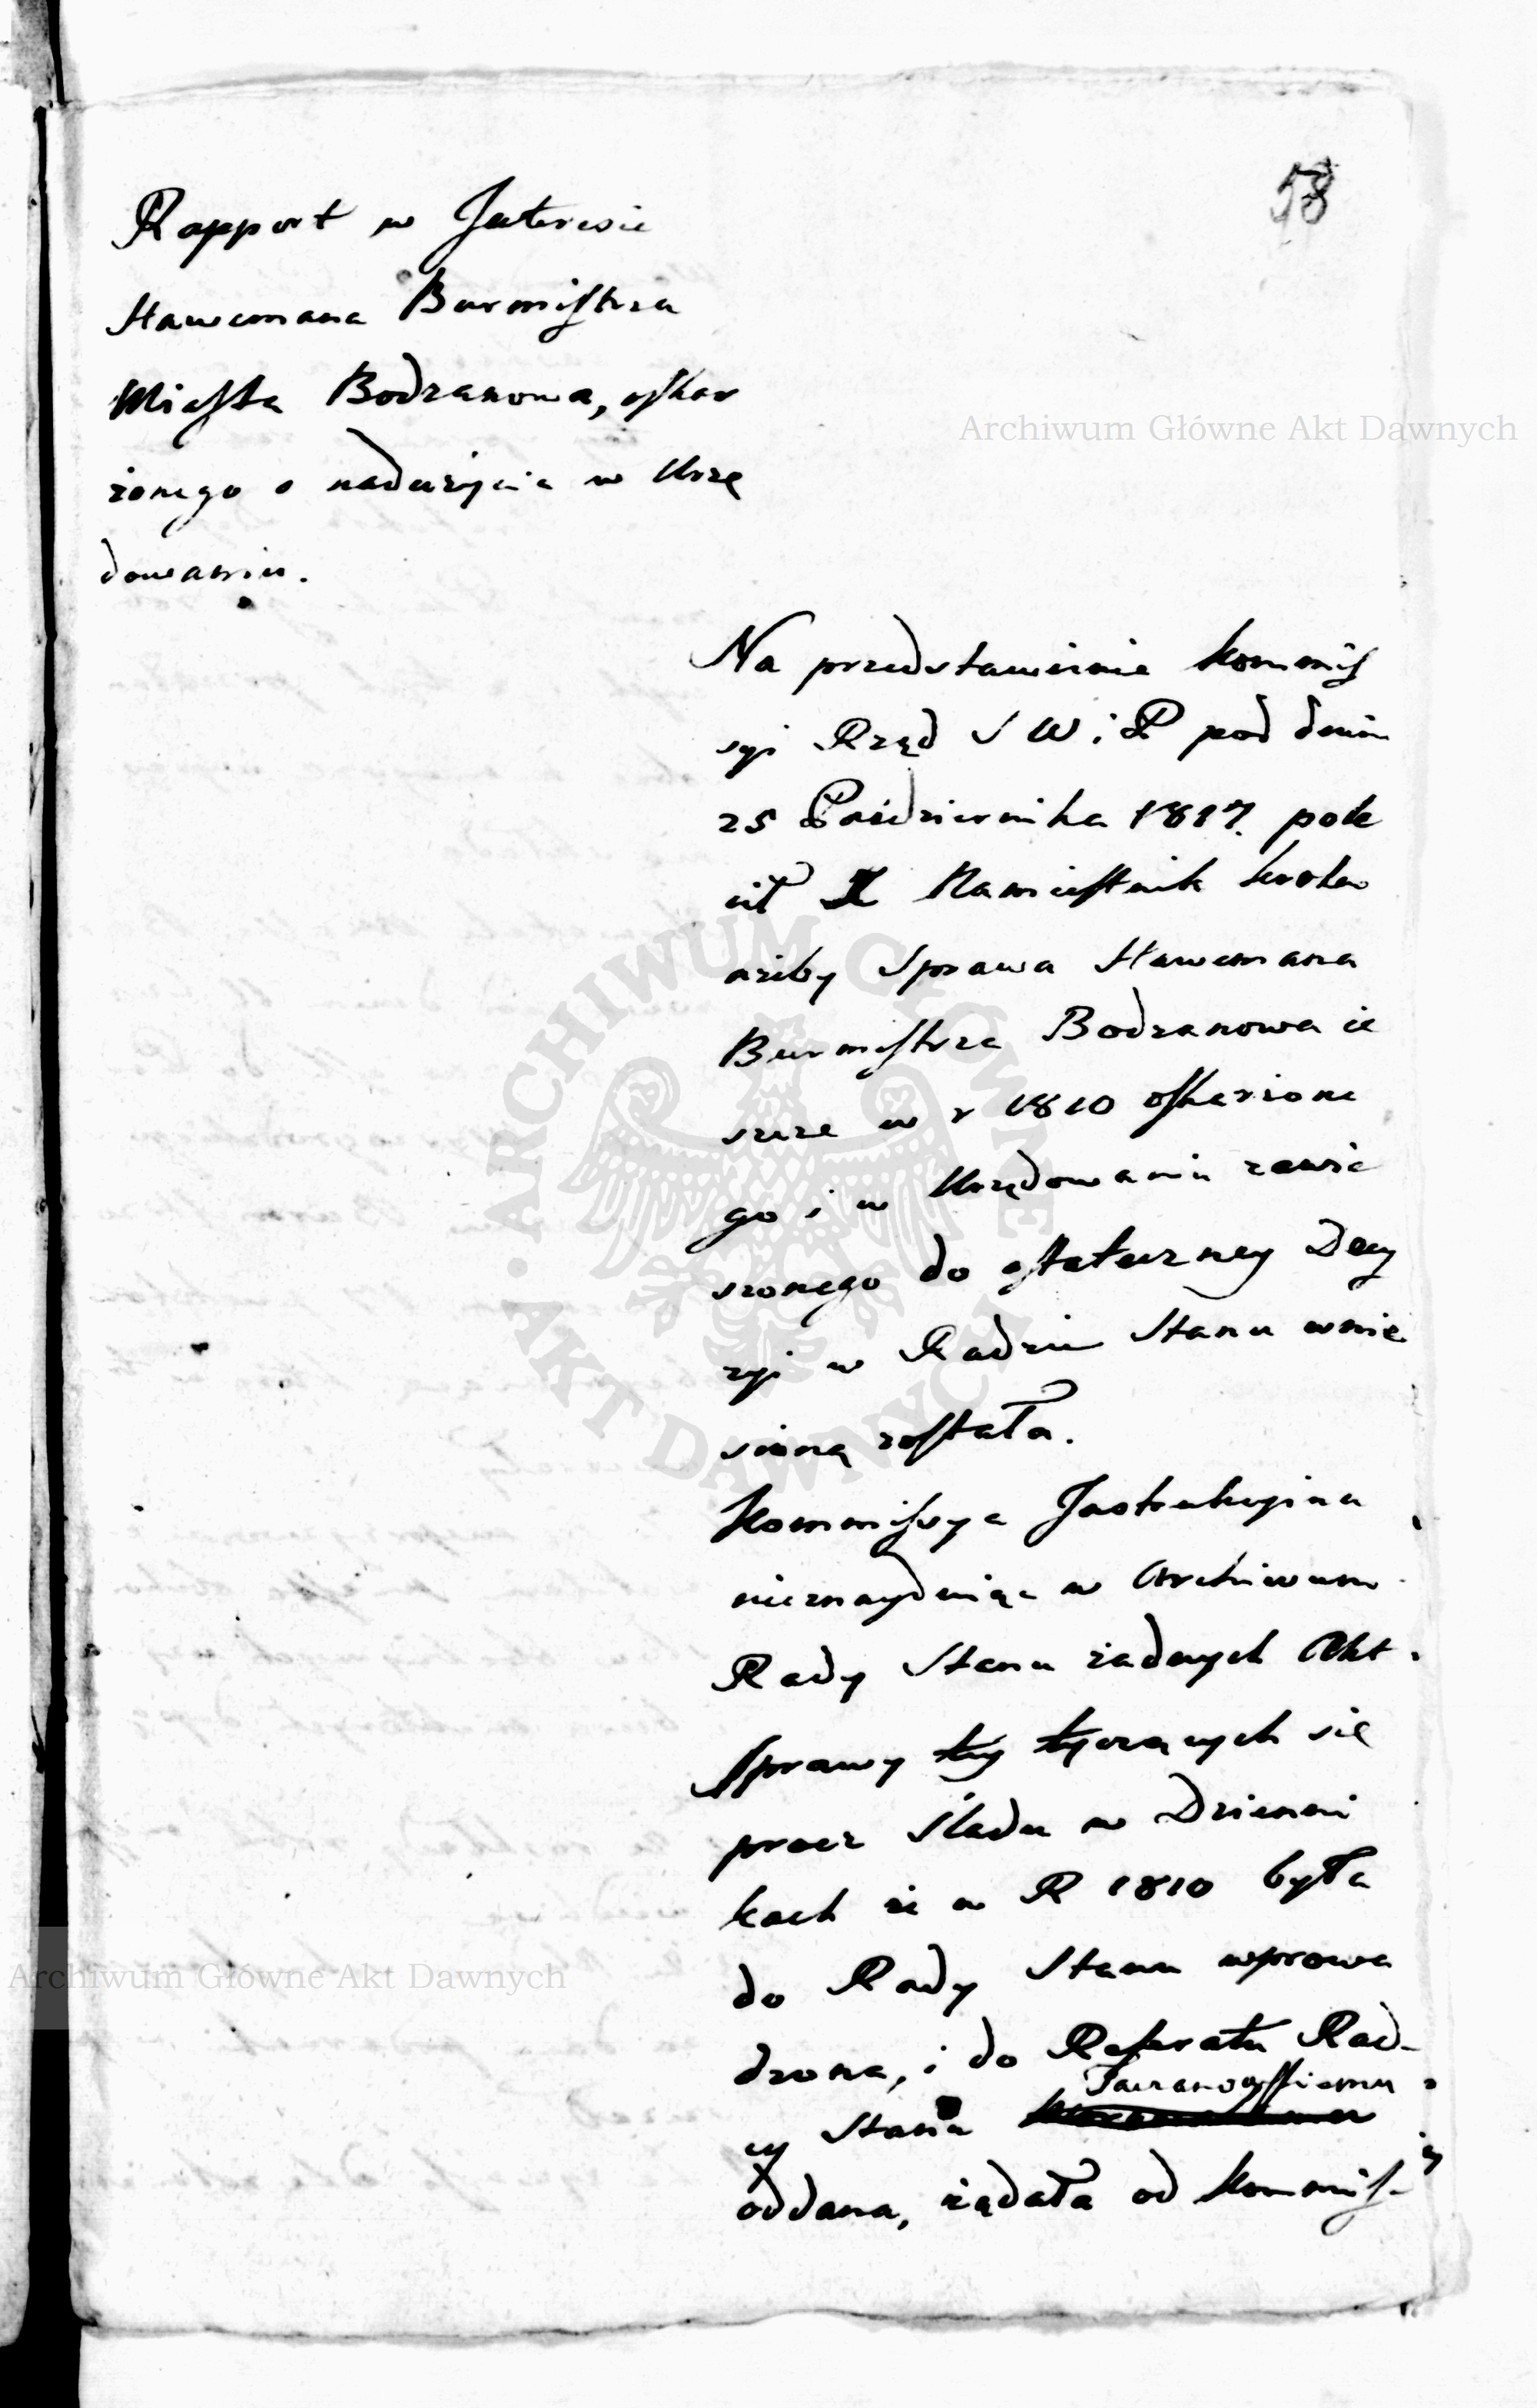 58
Rapport w Interesie
Hawemana Burmistrza
Miasta Bodzanowa, oskar
żonego o nadużycie w Urzę
dowaniu.
Archiwum Główne Akt Dawnych
Na przedstawienie Kommis
syi Rząd S W i P pod dniem
25 Października 1817. pole
cił X Namiestnik Królew
ażeby Sprawa Hawemana
Burmistrza Bodzanowa ie
szcze w r 1810 oskarżone
go i w Urzędowaniu zawie
szonego do ostateczney Decy
zyi w Radzie Stanu wnie
sioną została.
Kommissya Instrukcyina
nieznaydując w Archiwum
Rady Stanu żadnych Akt
Sprawy tey tyczących się
procz Sladu w Dzienni
kach że w R 1810 była
do Rady Stanu wprowa
dzona, i do Referatu Rad-
cy Stanu
oddana, żądała od Kommis-
ARCHIWUM GŁÓWNE • AKT DAWNYCH •
Archiwum Główne Akt Dawnych